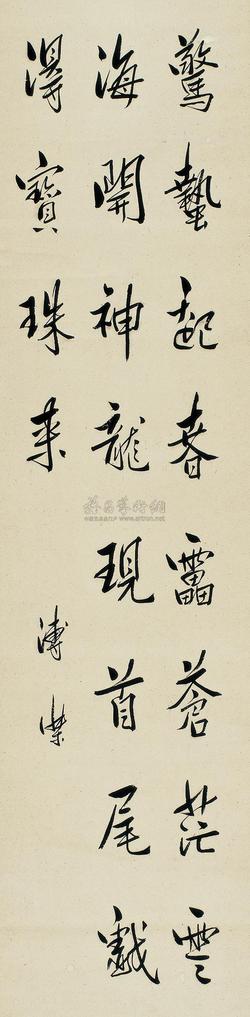 驚蟄起春雷蒼茫雲
海開神龍現首尾戲
得寶珠來
溥
雅昌藝術網